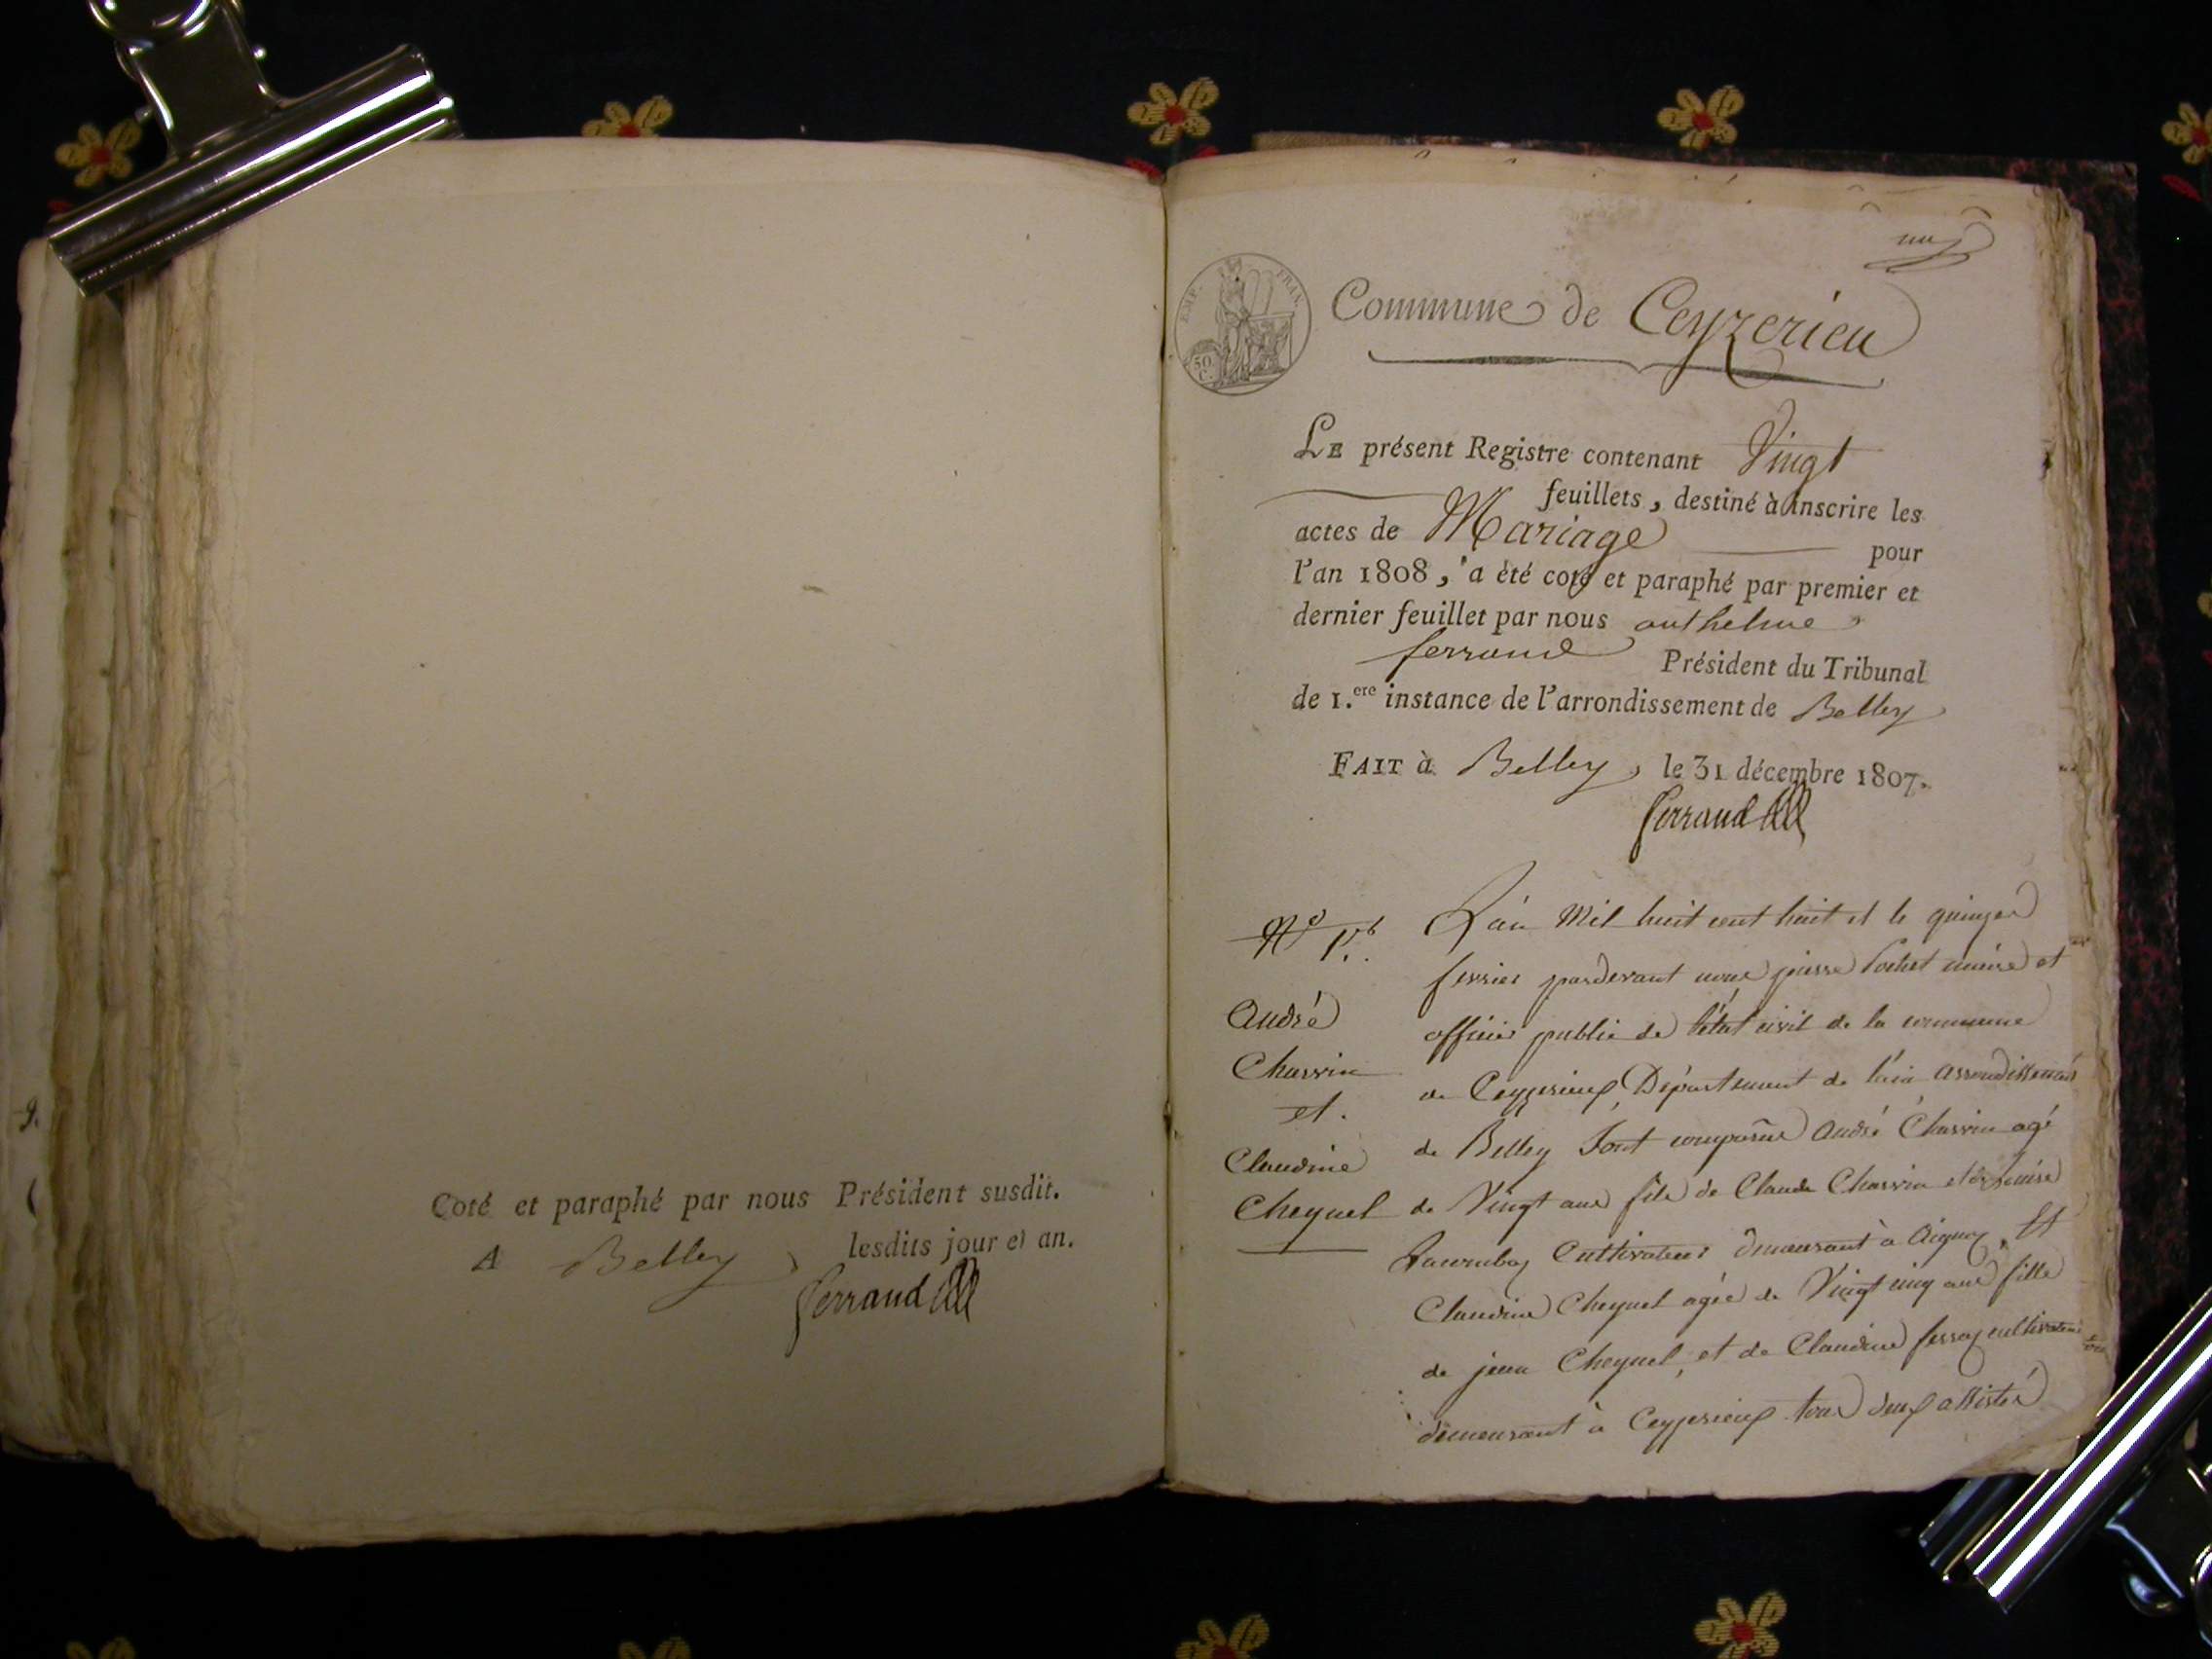 Coté et paraphé par nous Président susdit.
A Belley lesdits jour et an.
Ferraud
EMP. FRAN.
50 C.
Commune de Ceyzerieu
LE présent Registre contenant Vingt
feuillets, destiné à inscrire les
actes de Mariage pour
l'an 1808, a été coté et paraphé par premier et
dernier feuillet par nous anthelme
ferrand Président du Tribunal
de 1.ere instance de l'arrondissement de Belley
FAIT à Belley, le 31 décembre 1807.
Ferraud
N° 1.er
André
Charvin
et.
Claudine
Cheynel
L'an Mil huit cent huit et le quinze
fevrier pardevant nous pierre maire et
officier public de l'état civil de la commune
de Ceyzerieux, Département de l'ain arrondissement
de Belley Sont comparus André Charvin agé
de Vingt ans fils de Claude Charvin et de
Cultivateur demeurant à Aignoz, Et
Claudine Cheynel agée de Vingt cinq ans fille
de jean Cheynel, et de Claudine ferroy cultivateur
demeurant à Ceyzerieux tous deux assistés